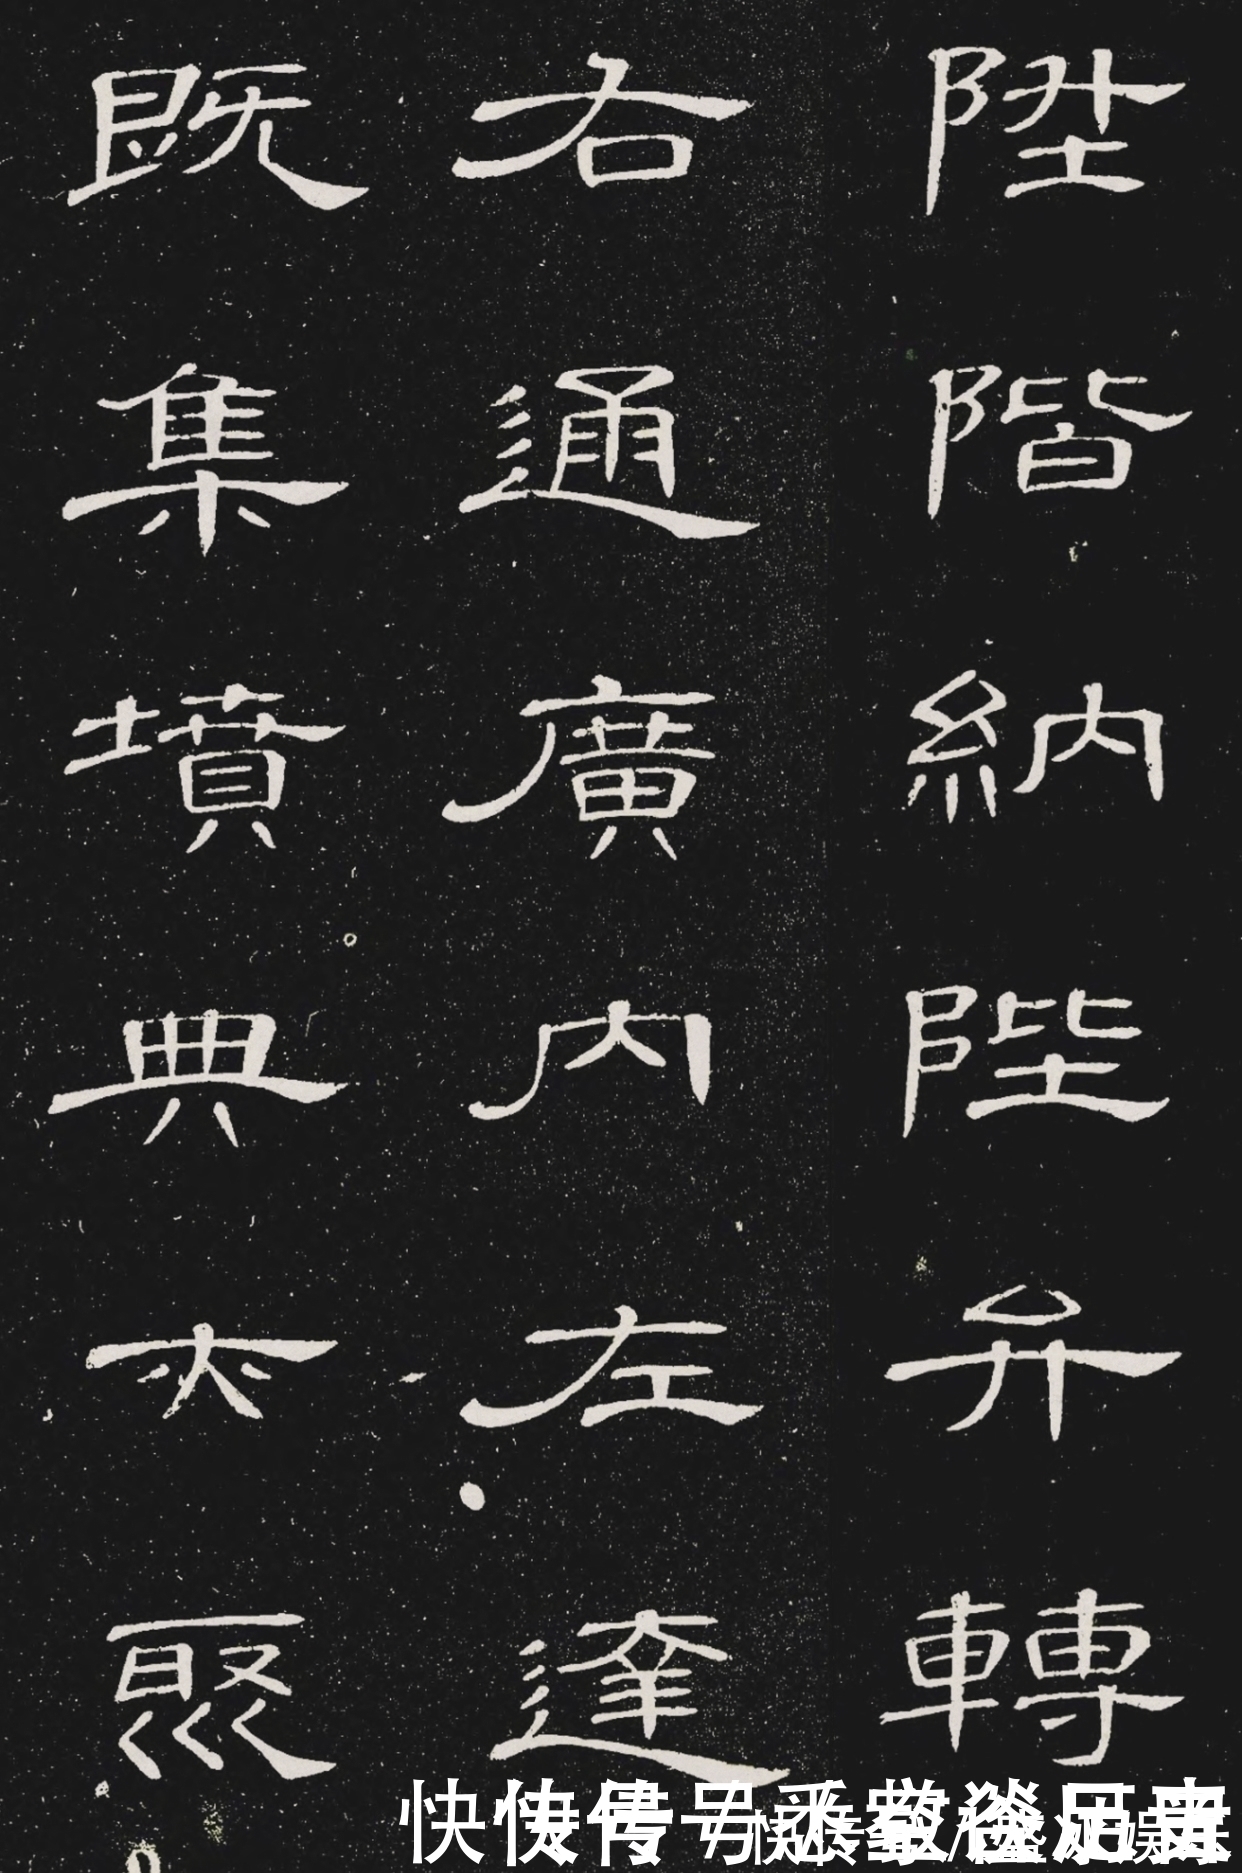 陞階納陛弁轉
右通廣內左達
既集墳典亦聚